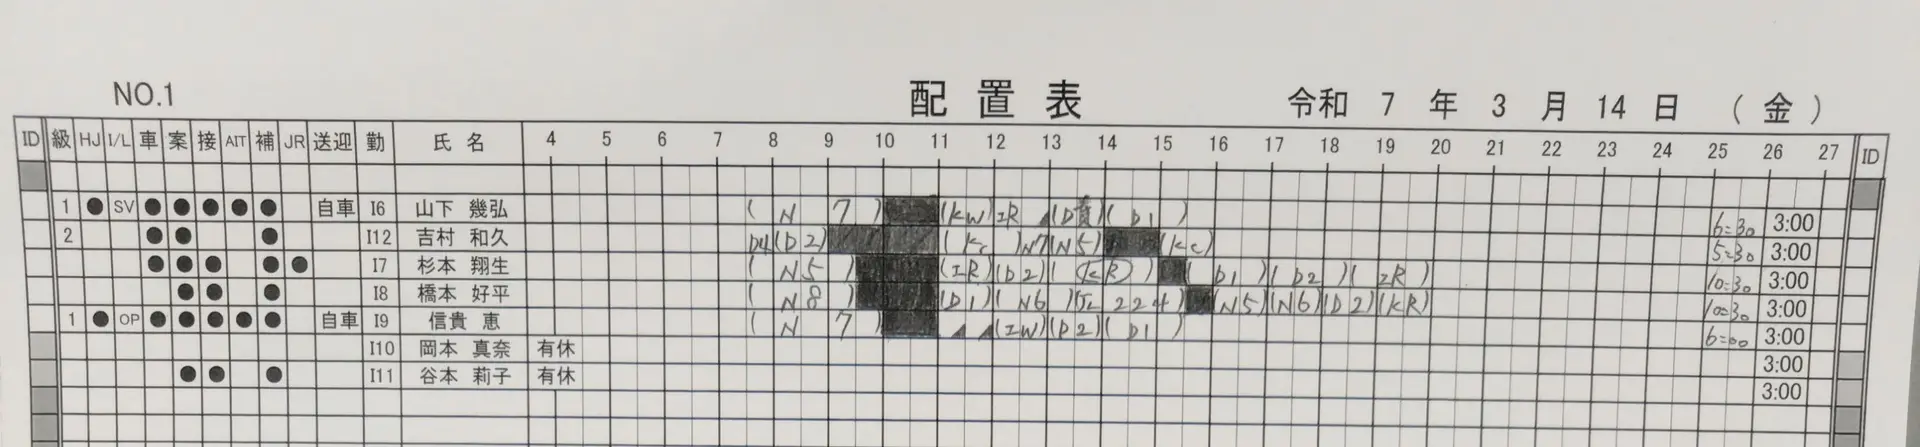 NO.1 配置表 令和 7 年 3 月 14 日 (金)
ID 級 HJ I/L 車 案 接 AIT 補 JR 送迎 勤 氏名 4 5 6 7 8 9 10 11 12 13 14 15 16 17 18 19 20 21 22 23 24 25 26 27 ID
1 ● SV ● ● ● ● ● 自車 I6 山下 幾弘 ( N 7 ) (KW) IR (D責) ( D1 ) 6=30 3:00
2 ● ● ● I12 吉村 和久 D4 (D2) ( Kc ) N7 (N5) (Kc) 5=30 3:00
● ● ● ● ● I7 杉本 翔生 ( N5 ) (IR) (D2) ( KR ) ( D1 ) ( D2 ) ( IR ) 10=30 3:00
● ● ● I8 橋本 好平 ( N8 ) (D1) ( N6 ) 224 ) (N5) (N6) (D2) (KR) 10=30 3:00
1 ● OP ● ● ● ● ● 自車 I9 信貴 恵 ( N 7 ) (IW) (D2) ( D1 ) 6=00 3:00
I10 岡本 真奈 有休 3:00
● ● ● I11 谷本 莉子 有休 3:00